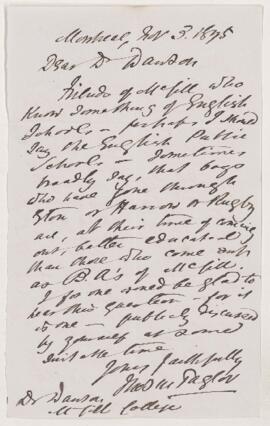 Montreal, Nov 3. 1875
Dear Dr Dawson
Friends of McGill who
know something of English
Schools – perhaps I should
say the English Public
Schools – sometimes
broadly say, that boys
who have gone through
Eton or Harrow or Rugby
are, at their time of coming
out, better educated
than those who come out
as BA's of McGill.
I for one would be glad to
hear this question – for it
is one – publicly discussed
by yourself at some
suitable time.
Yours faithfully
Taylor
Dr Dawson
McGill College